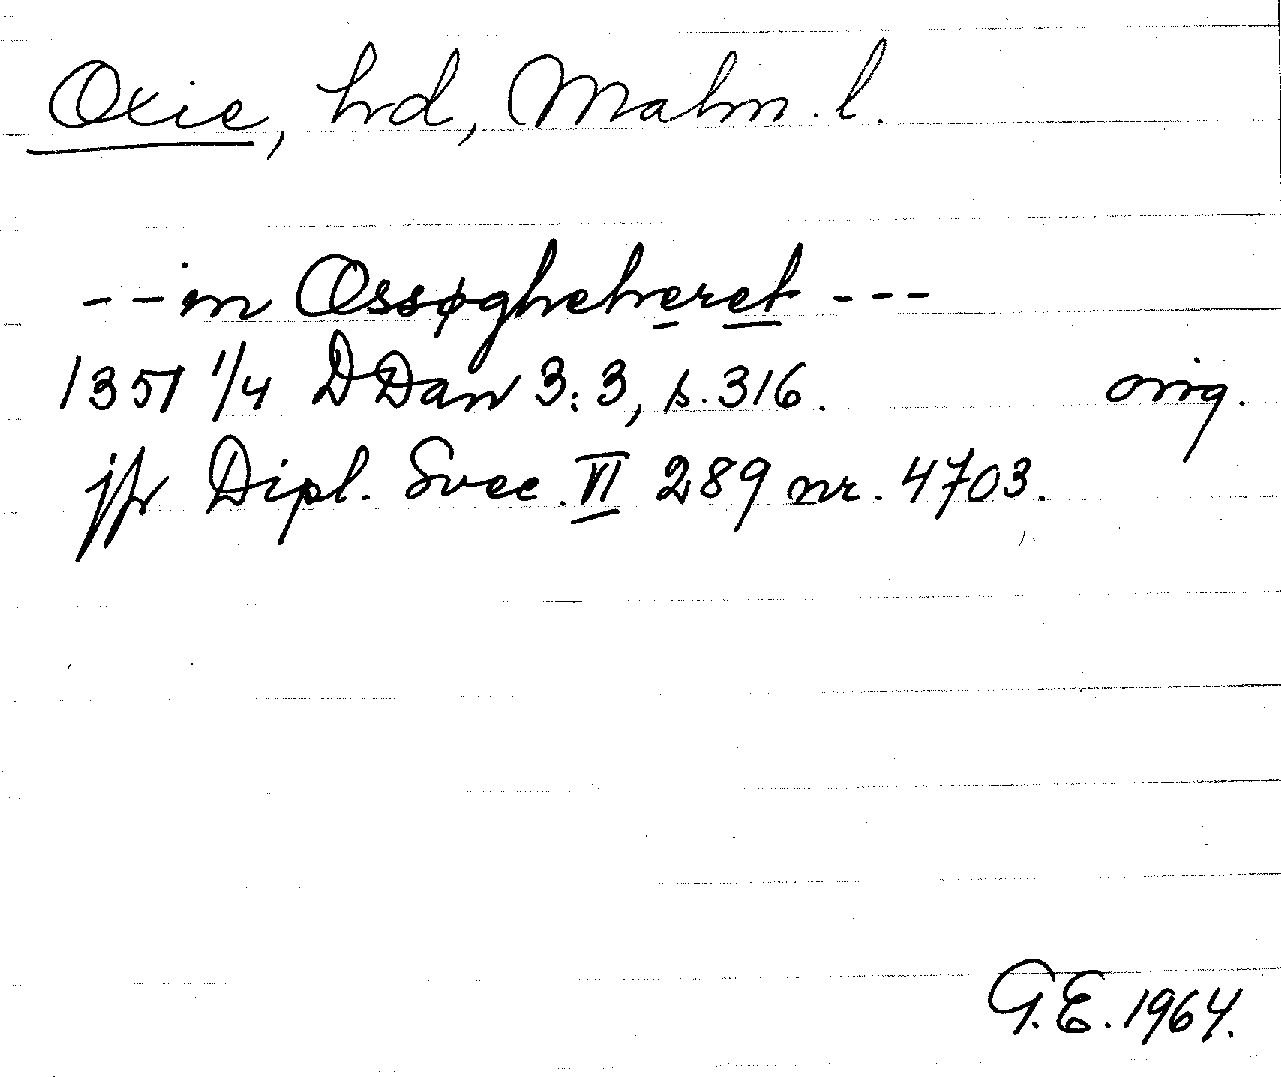 Oxie, hd, Malm. l.
-- in Ossøgheheret ---
1351 1/4 DDan 3:3, s. 316. orig.
jfr Dipl. Svec. VI 289 nr. 4703.
G.E. 1964.